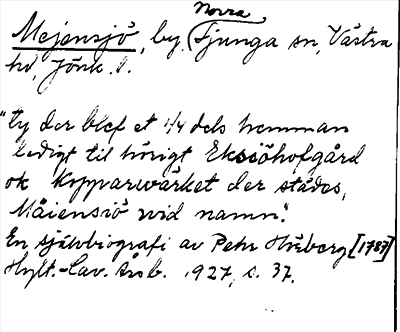 Norra
Mejensjö, by, Ljunga sn, Västra
hd, Jönk. l.
"ty der blef et 1/4 dels hemman
ledigt til hörigt Eksiöhofgård
ok Kopparwärket der städes,
Mäiensiö wid namn".
En självbiografi av Pehr Höberg [1787]
Hylt.-Cav. årsb. 1927, s. 37.